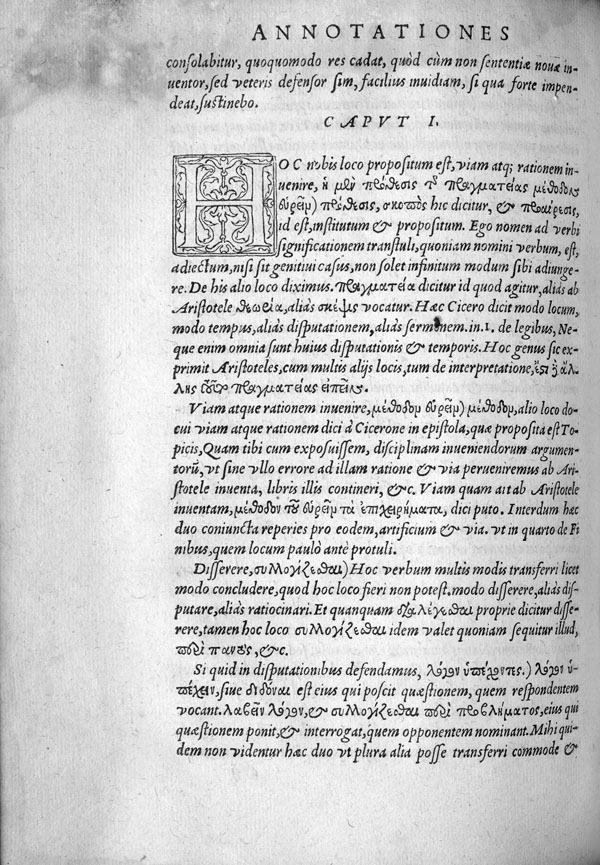 ANNOTATIONES
consolabitur, quoquomodo res cadat, quòd cùm non sententiæ nouæ in-
uentor, sed veteris defensor sim, facilius inuidiam, si qua forte impen-
deat, sustinebo.
CAPVT I.
HOC nobis loco propositum est, viam atq; rationem in-
uenire, ἡ μὲν πρόθεσις τῆς πραγματείας μέθοδον
εὑρεῖν) πρόθεσις, σκοπὸς hic dicitur, & προαίρεσις,
id est, institutum & propositum. Ego nomen ad verbi
significationem transtuli, quoniam nomini verbum, est,
adiectum, nisi sit genitiui casus, non solet infinitum modum sibi adiunge-
re. De his alio loco diximus. πραγματεία dicitur id quod agitur, aliàs ab
Aristotele θεωρία, aliàs σκέψις vocatur. Hæc Cicero dicit modo locum,
modo tempus, aliàs disputationem, aliàs sermonem. in. 1. de legibus, Ne-
que enim omnia sunt huius disputationis & temporis. Hoc genus sic ex-
primit Aristoteles, cum multis alijs locis, tum de interpretatione, ἔστι γὰ ἄλ-
λης τοῦτο πραγματείας εἰπεῖν.
Viam atque rationem inuenire, μέθοδον εὑρεῖν) μέθοδον, alio loco do-
cui viam atque rationem dici à Cicerone in epistola, quæ proposita est To-
picis, Quam tibi cum exposuissem, disciplinam inueniendorum argumen-
torū, vt sine vllo errore ad illam ratione & via perueniremus ab Ari-
stotele inuenta, libris illis contineri, &c. Viam quam ait ab Aristotele
inuentam, μέθοδον τοῦ εὑρεῖν τὰ ἐπιχειρήματα, dici puto. Interdum hæc
duo coniuncta reperies pro eodem, artificium & via. vt in quarto de Fi
nibus, quem locum paulò antè protuli.
Disserere, συλλογίζεσθαι) Hoc verbum multis modis transferri licet
modo concludere, quod hoc loco fieri non potest, modo disserere, aliàs dis-
putare, aliàs ratiocinari. Et quanquam διαλέγεσθαι proprie dicitur disse-
rere, tamen hoc loco συλλογίζεσθαι idem valet quoniam sequitur illud,
περὶ παντὸς, &c.
Si quid in disputationibus defendamus, λόγον ὑπέχοντες.) λόγον ὑ-
πέχειν, siue διδόναι est eius qui poscit quæstionem, quem respondentem
vocant. λαβεῖν λόγον, & συλλογίζεσθαι περὶ προβλήματος, eius qui
quæstionem ponit, & interrogat, quem opponentem nominant. Mihi qui-
dem non videntur hæc duo vt plura alia posse transferri commode &